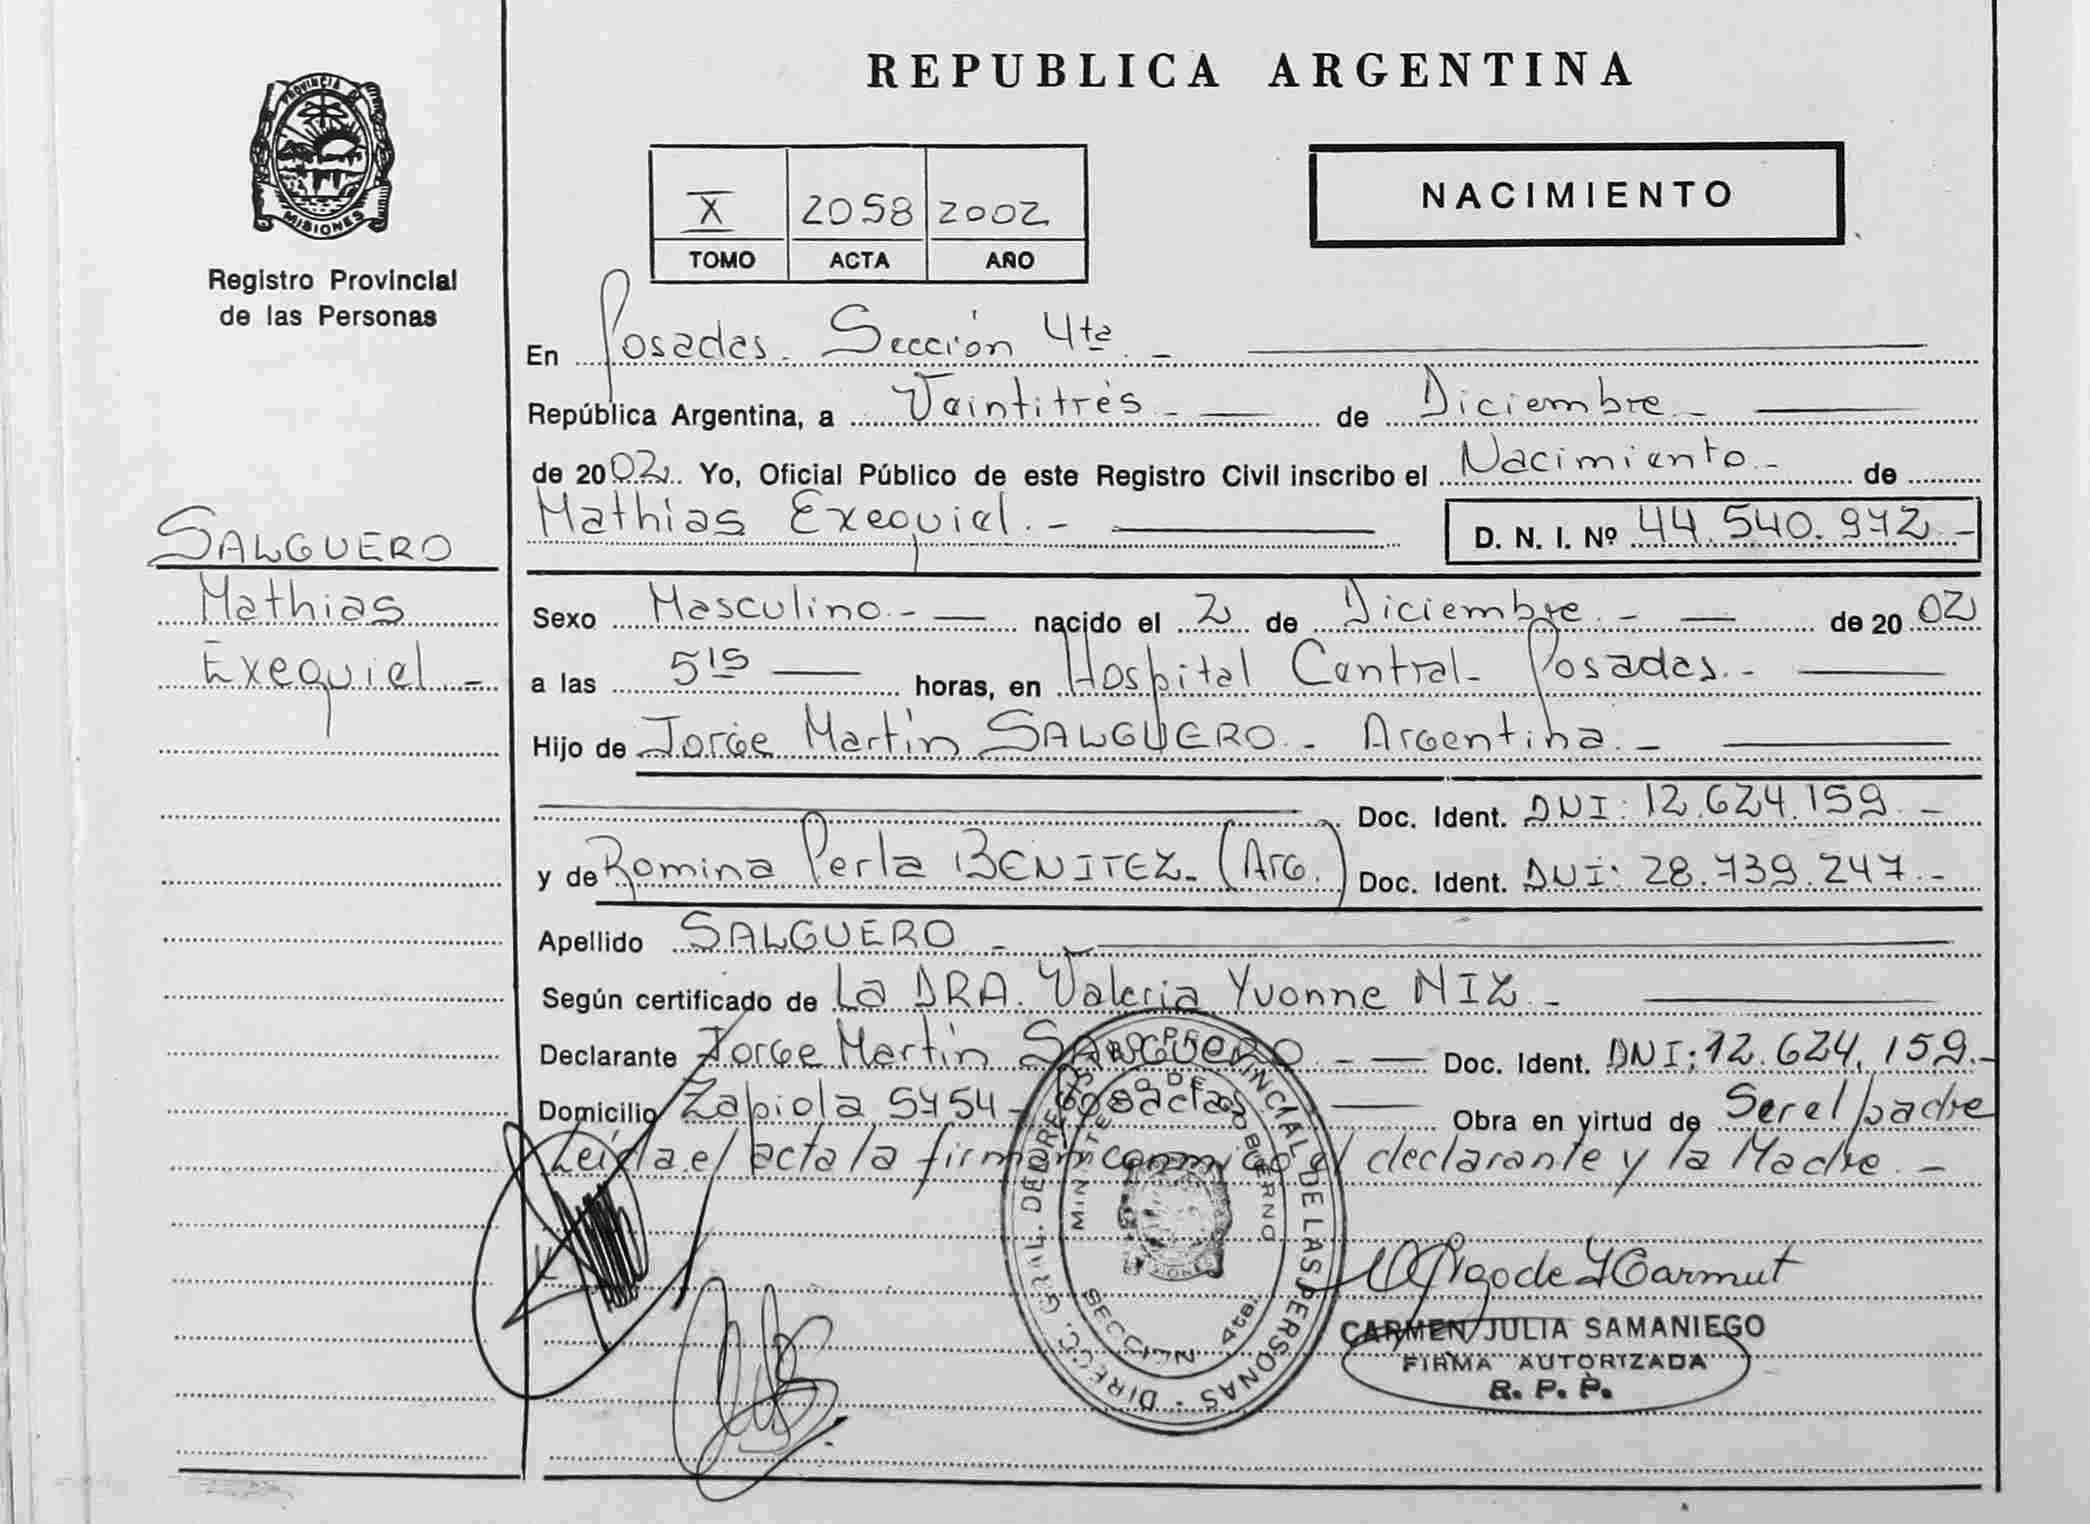 REPUBLICA ARGENTINA
PROVINCIA DE
MISIONES
Registro Provincial
de las Personas
NACIMIENTO
X 2058 2002
TOMO ACTA AÑO
En Posadas. Sección 4ta. -
República Argentina, a Veintitrés - de Diciembre -
de 2002. Yo, Oficial Público de este Registro Civil inscribo el Nacimiento - de
Mathias Exequiel. - D. N. I. Nº 44.540.972 -
SALGUERO
Mathias
Exequiel. -
Sexo Masculino. - nacido el 2 de Diciembre. - de 2002
a las 5 15 horas, en Hospital Central - Posadas. -
Hijo de Jorge Martín SALGUERO. - Argentina. -
Doc. Ident. DNI: 12.624.159. -
y de Romina Perla BENITEZ. (Arg.) Doc. Ident. DNI: 28.739.247. -
Apellido SALGUERO -
Según certificado de La DRA. Valeria Yvonne NIZ. -
Declarante Jorge Martín SALGUERO. - Doc. Ident. DNI: 12.624.159. -
Domicilio Zapiola 5454 - Posadas Obra en virtud de Ser el padre
Leída el acta la firman conmigo el declarante y la Madre. -
DIRECC. GRAL. DEL REG. PROVINCIAL DE LAS PERSONAS
MINISTERIO DE GOBIERNO
MISIONES
SECCION 4ta.
CARMEN JULIA SAMANIEGO
FIRMA AUTORIZADA
R. P. P.